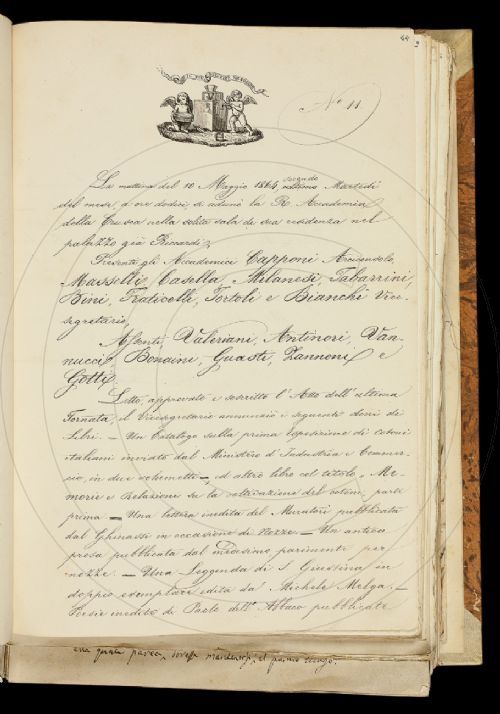 44
N.° 11
La mattina del 10 Maggio 1864, secondo Martedì
del mese, a ore dodici si adunò la R. Accademia
della Crusca nella solita sala di sua residenza nel
palazzo già Riccardi,
Presenti gli Accademici Capponi, Arcangeli,
Masselli, Casella, Milanesi, Tabarrini,
Bini, Fraticelli, Tortoli e Bianchi Vice-
segretario,
Assenti, Valeriani, Antinori, Van-
nucci, Bonaini, Guasti, Zannoni e
Gotti,
Letto, approvato e soscritto l'Atto dell'ultima
Tornata, il Vicesegretario annunziò i seguenti doni di
Libri. — Un Catalogo sulla prima Esposizione di cotoni
italiani inviato dal Ministero d'Industria e Commer-
cio, in due volumetti —, ed altro libro col titolo, Me-
morie e Relazioni su la coltivazione del cotone, parte
prima — Una lettera inedita del Muratori pubblicata
dal Ghinassi in occasione di Nozze. — Un antica
presa pubblicata dal medesimo parimente per
nozze. — Una Leggenda di S. Giustina in
doppio esemplare edita da Michele Melga. —
Poesie inedite di Paolo dell'Abbaco pubblicate